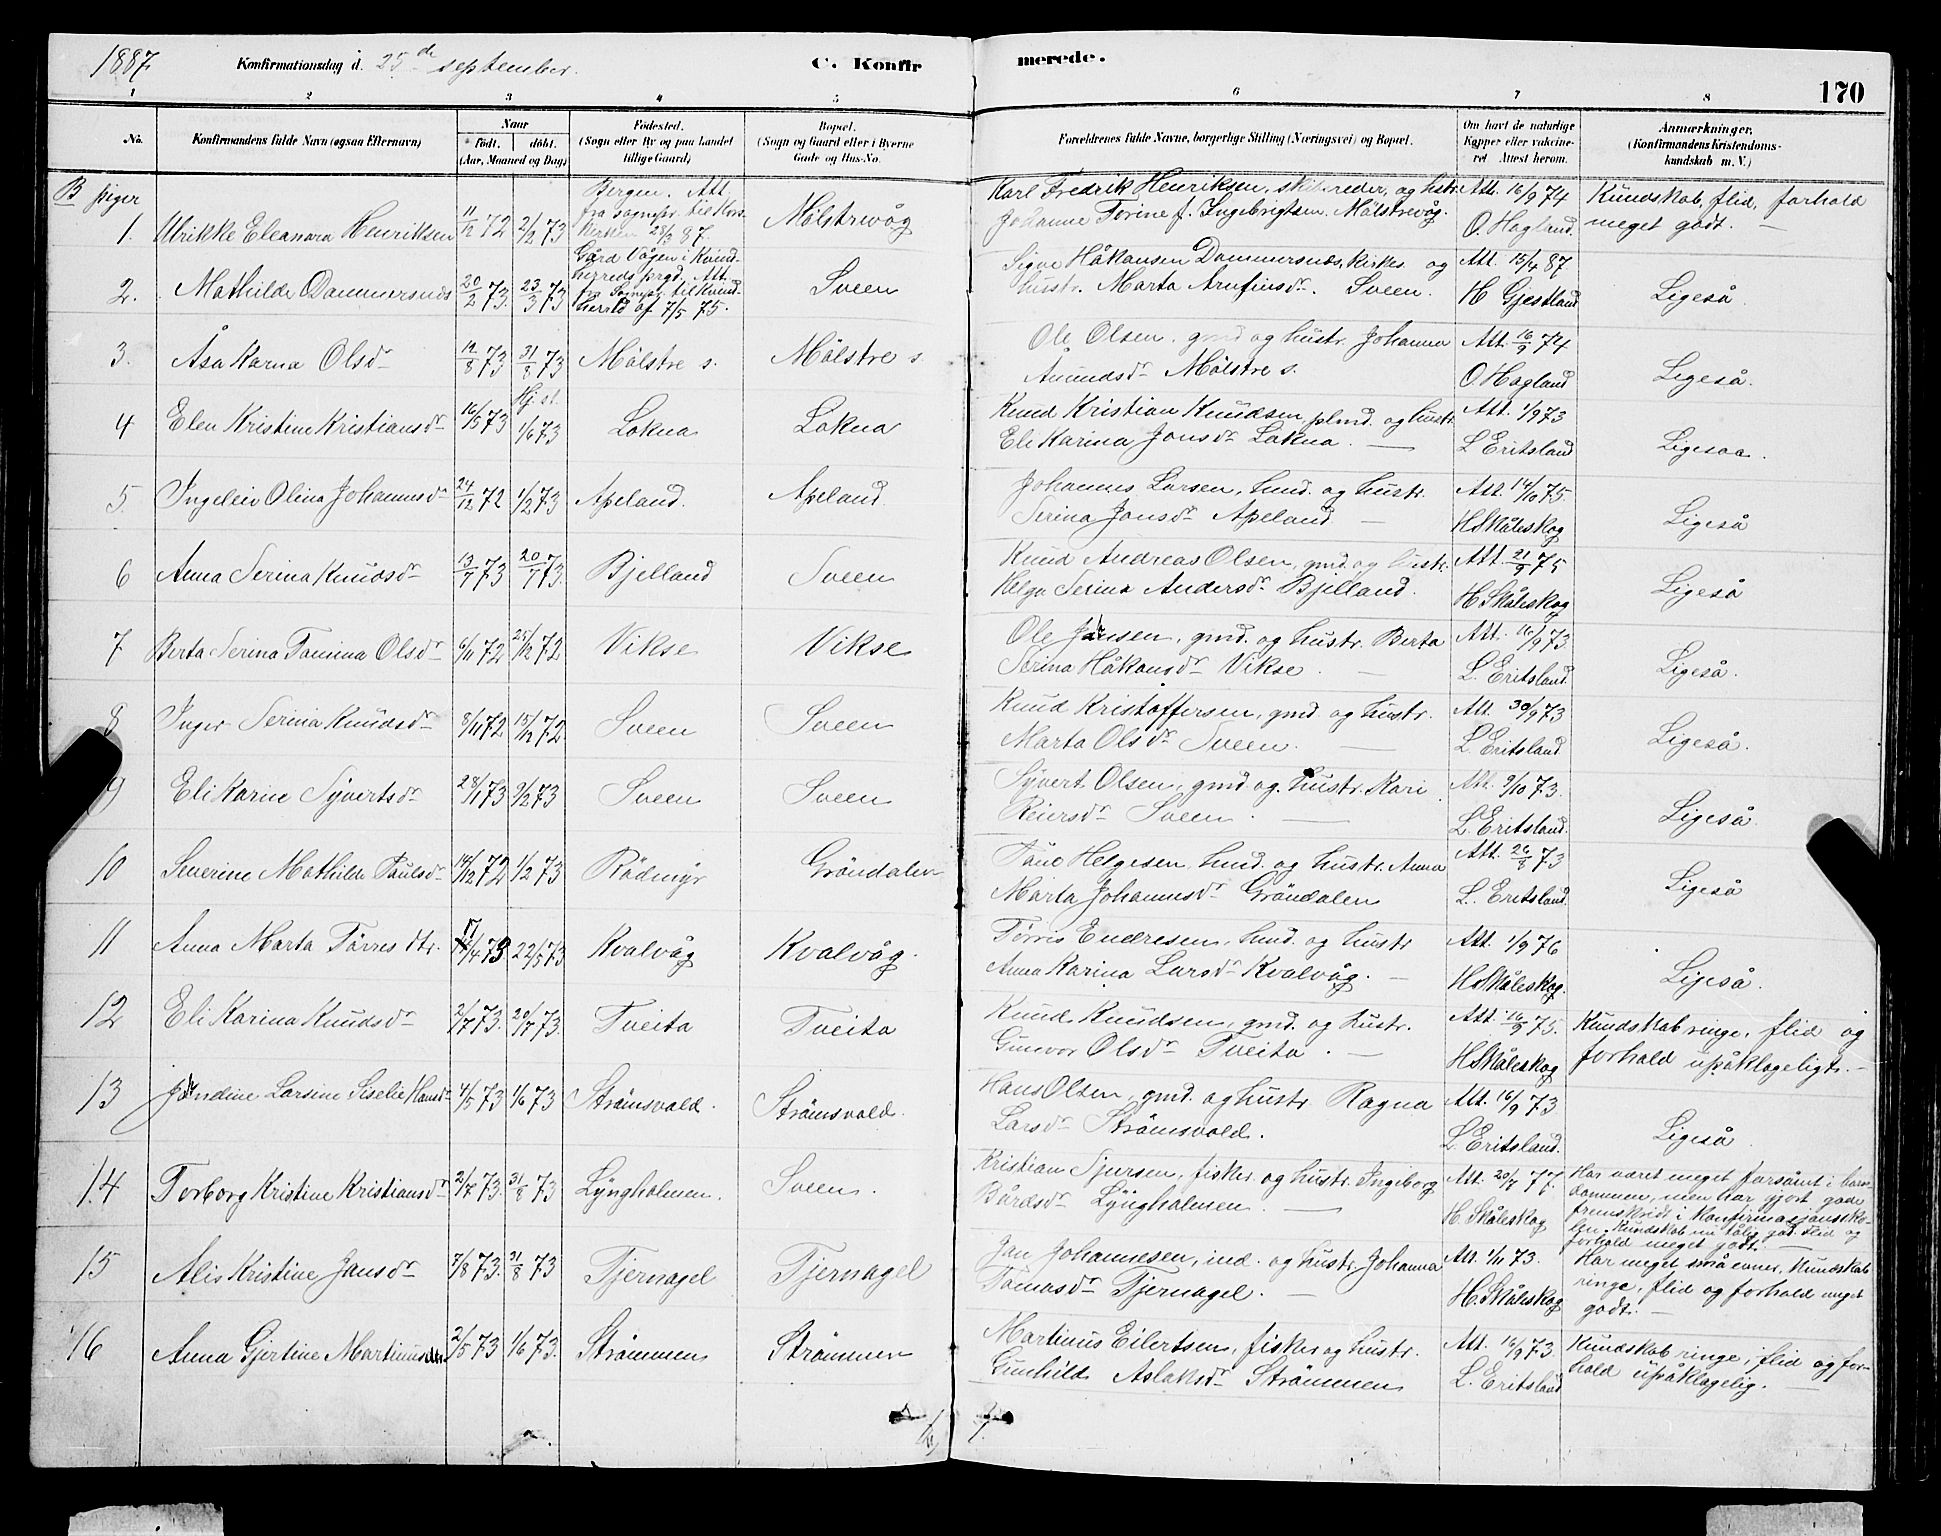 1887. Konfirmationsdag d. 25de september. C. Konfirmerede. 170
1 2 3 4 5 6 7 8
No. Konfirmandens fulde Navn (ogsaa Efternavn) Naar født. døbt. (Aar, Maaned og Dag) Fødested. (Sogn eller By og paa Landet tillige Gaard) Bopæl. (Sogn og Gaard eller i Byerne Gade og Hus-No. Forældrenes fulde Navne, borgerlige Stilling (Næringsvei) og Bopæl. Om havt de naturlige Kopper eller vaccineret. Attest herom. Anmærkninger. (Konfirmandens Kristendomskundskab m. V.)
B piger
1. Ulrikke Eleanora Henriksen 11/12 72 2/2 73 Bergen. Att. fra sognepr. til Korskirken 28/3 87. Mölstrevåg Karl Fredrik Henriksen, skibsreder, og hstr. Johanne Torine f. Ingebrigtsen. Mölstrevåg. Att. 16/9 74 O. Hagland. Kundskab, flid, forhold meget godt. —
2. Mathilde Dommersnes 20/2 73. 23/3 73 Gård Vågen i Kvindherreds prgd. Att. fra Sognepr. til Kvindherred af 7/5 75. Sveen Signe Håkansen Dommersnes, kirkes. og hustr. Marta Arnfinsdr. Sveen. Att. 15/4 87 H Gjestland Ligeså.
3. Åsa Karna Olsdr 19/8 73 31/8 73 Mölstre s. Mölstre s. Ole Olsen, gmd og hustr. Johanna Amundsdr Mölstre s. Att. 16/9 74 O Hagland Ligeså.
4 Elen Kristine Kristiansdr 16/5 73 Hj. st. 1/6 73 Lokna Lokna Knud Kristian Knudsen plmd. og hustr. Eli Karina Jonsdr Lokna. — Att. 1/9 73 L Eritsland Ligesaa.
5 Ingeleiv Olina Johannesdr 24/12 72 1/2 73 Apeland. Apeland Johannes Larsen, hmd. og hustr. Serina Jonsdr Apeland — Att. 14/10 75. H Skåleskog Ligeså
6 Anna Serina Knudsdr 13/7 73 20/7 73. Bjelland Sveen Knud Andreas Olsen, gmd. og hustr. Helga Serina Andersdr Bjelland. Att. 21/9 75 H Skåleskog Ligeså
7 Berta Serina Tomina Olsdr 6/11 72 25/12 72 Vikse Vikse Ole Jansen, gmd. og hustr. Berta Serina Håkansdr Vikse. — Att. 16/9 73. L. Eritsland. Ligeså.
8 Inger Serina Knudsdr 8/11 72 15/12 72. Sveen Sveen Knud Kristoffersen, gmd. og hustr. Marta Olsdr Sveen. — Att 30/9 73 L. Eritsland Ligeså.
9 Eli Karine Syvertsdr 28/1 73 9/2 73 Sveen Sveen Syvert Olsen, gmd og hustr. Kari Reiersdr Sveen. — Att. 9/10 73. L. Eritsland. Ligeså.
10 Severine Mathilde Paulsdr 14/12 72 1/2 73 Rödmyr Gröndalen Paul Helgesen hmd. og hustr. Anna Marta Johannesdr Gröndalen Att. 26/8 73 L. Eritsland. Ligeså
11 Anna Marta Törresdtr. 17/4 73 22/5 73 Kvalvåg Kvalvåg. Törris Endresen, hmd. og hustr Anna Karina Larsdr Kvalvåg. — Att. 1/9 76 H. Skåleskog. Ligeså.
12 Eli Karina Knudsdr 2/7 73. 20/7 73. Tveita Tveita Knud Knudsen, gmd. og hustr. Gunvor Olsdr Tveita. — Att. 16/9 75. H Skåleskog Kundskab ringe, flid og forhold upåklageligt. —
13 Jondine Larsine Siselie Hansdr 4/5 73 1/6 73 Strömsvold. Strömsvold. Hans Olsen, gmd. og hustr. Ragna Larsdr Strömsvold. Att. 16/9 73 L. Eritsland. Ligeså
14 Torborg Kristine Kristiansdr 2/7 73. 31/8 73 Lyngholmen. Sveen. Kristian Sjursen, fisker og hustr. Ingeborg Bårdsdr Lyngholmen. — Att. 20/7 77. H. Skåleskog Har været meget forsömt i barndommen, men har gjort gode fremskridt i konfirmasjonsskolen. Kundskab nu tålig god. Flid og forhold meget godt. —
15 Alis Kristine Jansdr 7/8 73. 31/8 73 Tjernagel Tjernagel Jan Johannesen, ind. og hustr. Johanna Tomasdr Tjernagel. — Att. 1/11 73. H. Skåleskog Har meget små evner, kundskab ringe, flid og forhold meget godt. —
16 Anna Gjertine Martinusdtr. 2/5 73 1/6 73. Strömmen Strömmen Martinus Eilertsen, fisker og hustr. Gunhild Aslaksdr Strömmen Att. 16/9 73 L. Eritsland Kundskab ringe, flid og forhold upåklagelig. —